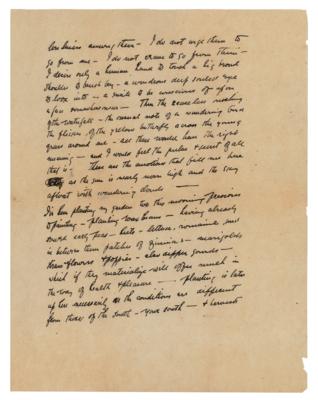 less basic among them - I do not urge them to
go from me - I do not crave to go from them -
I desire only a human hand to touch a big broad
shoulder to brush by - a wondrous deep soulless eye
to look into - a smile to be conscious of upon
a fair countenance - Then the ceaseless rushing
of the waterfall - the casual note of a wandering bird
the flicker of the yellow butterfly across the young
grass around me - all these would have the right
meaning - and I would feel the pulse secret of all
that is. These are the emotions that fill me here
as the sun is nearly noon high and the sky
afloat with wandering clouds -
I've been planting my garden too this morning
planting - planting beans - having already
sowed early peas - beets - lettuce, romaine and
in between them patches of zinnias - marigolds
poppies - also dipper gourds -
which if they materialize will offer much in
the way of health & pleasure - planting is later
up here necessarily as the conditions are different
from those of the South - your south - & harvest